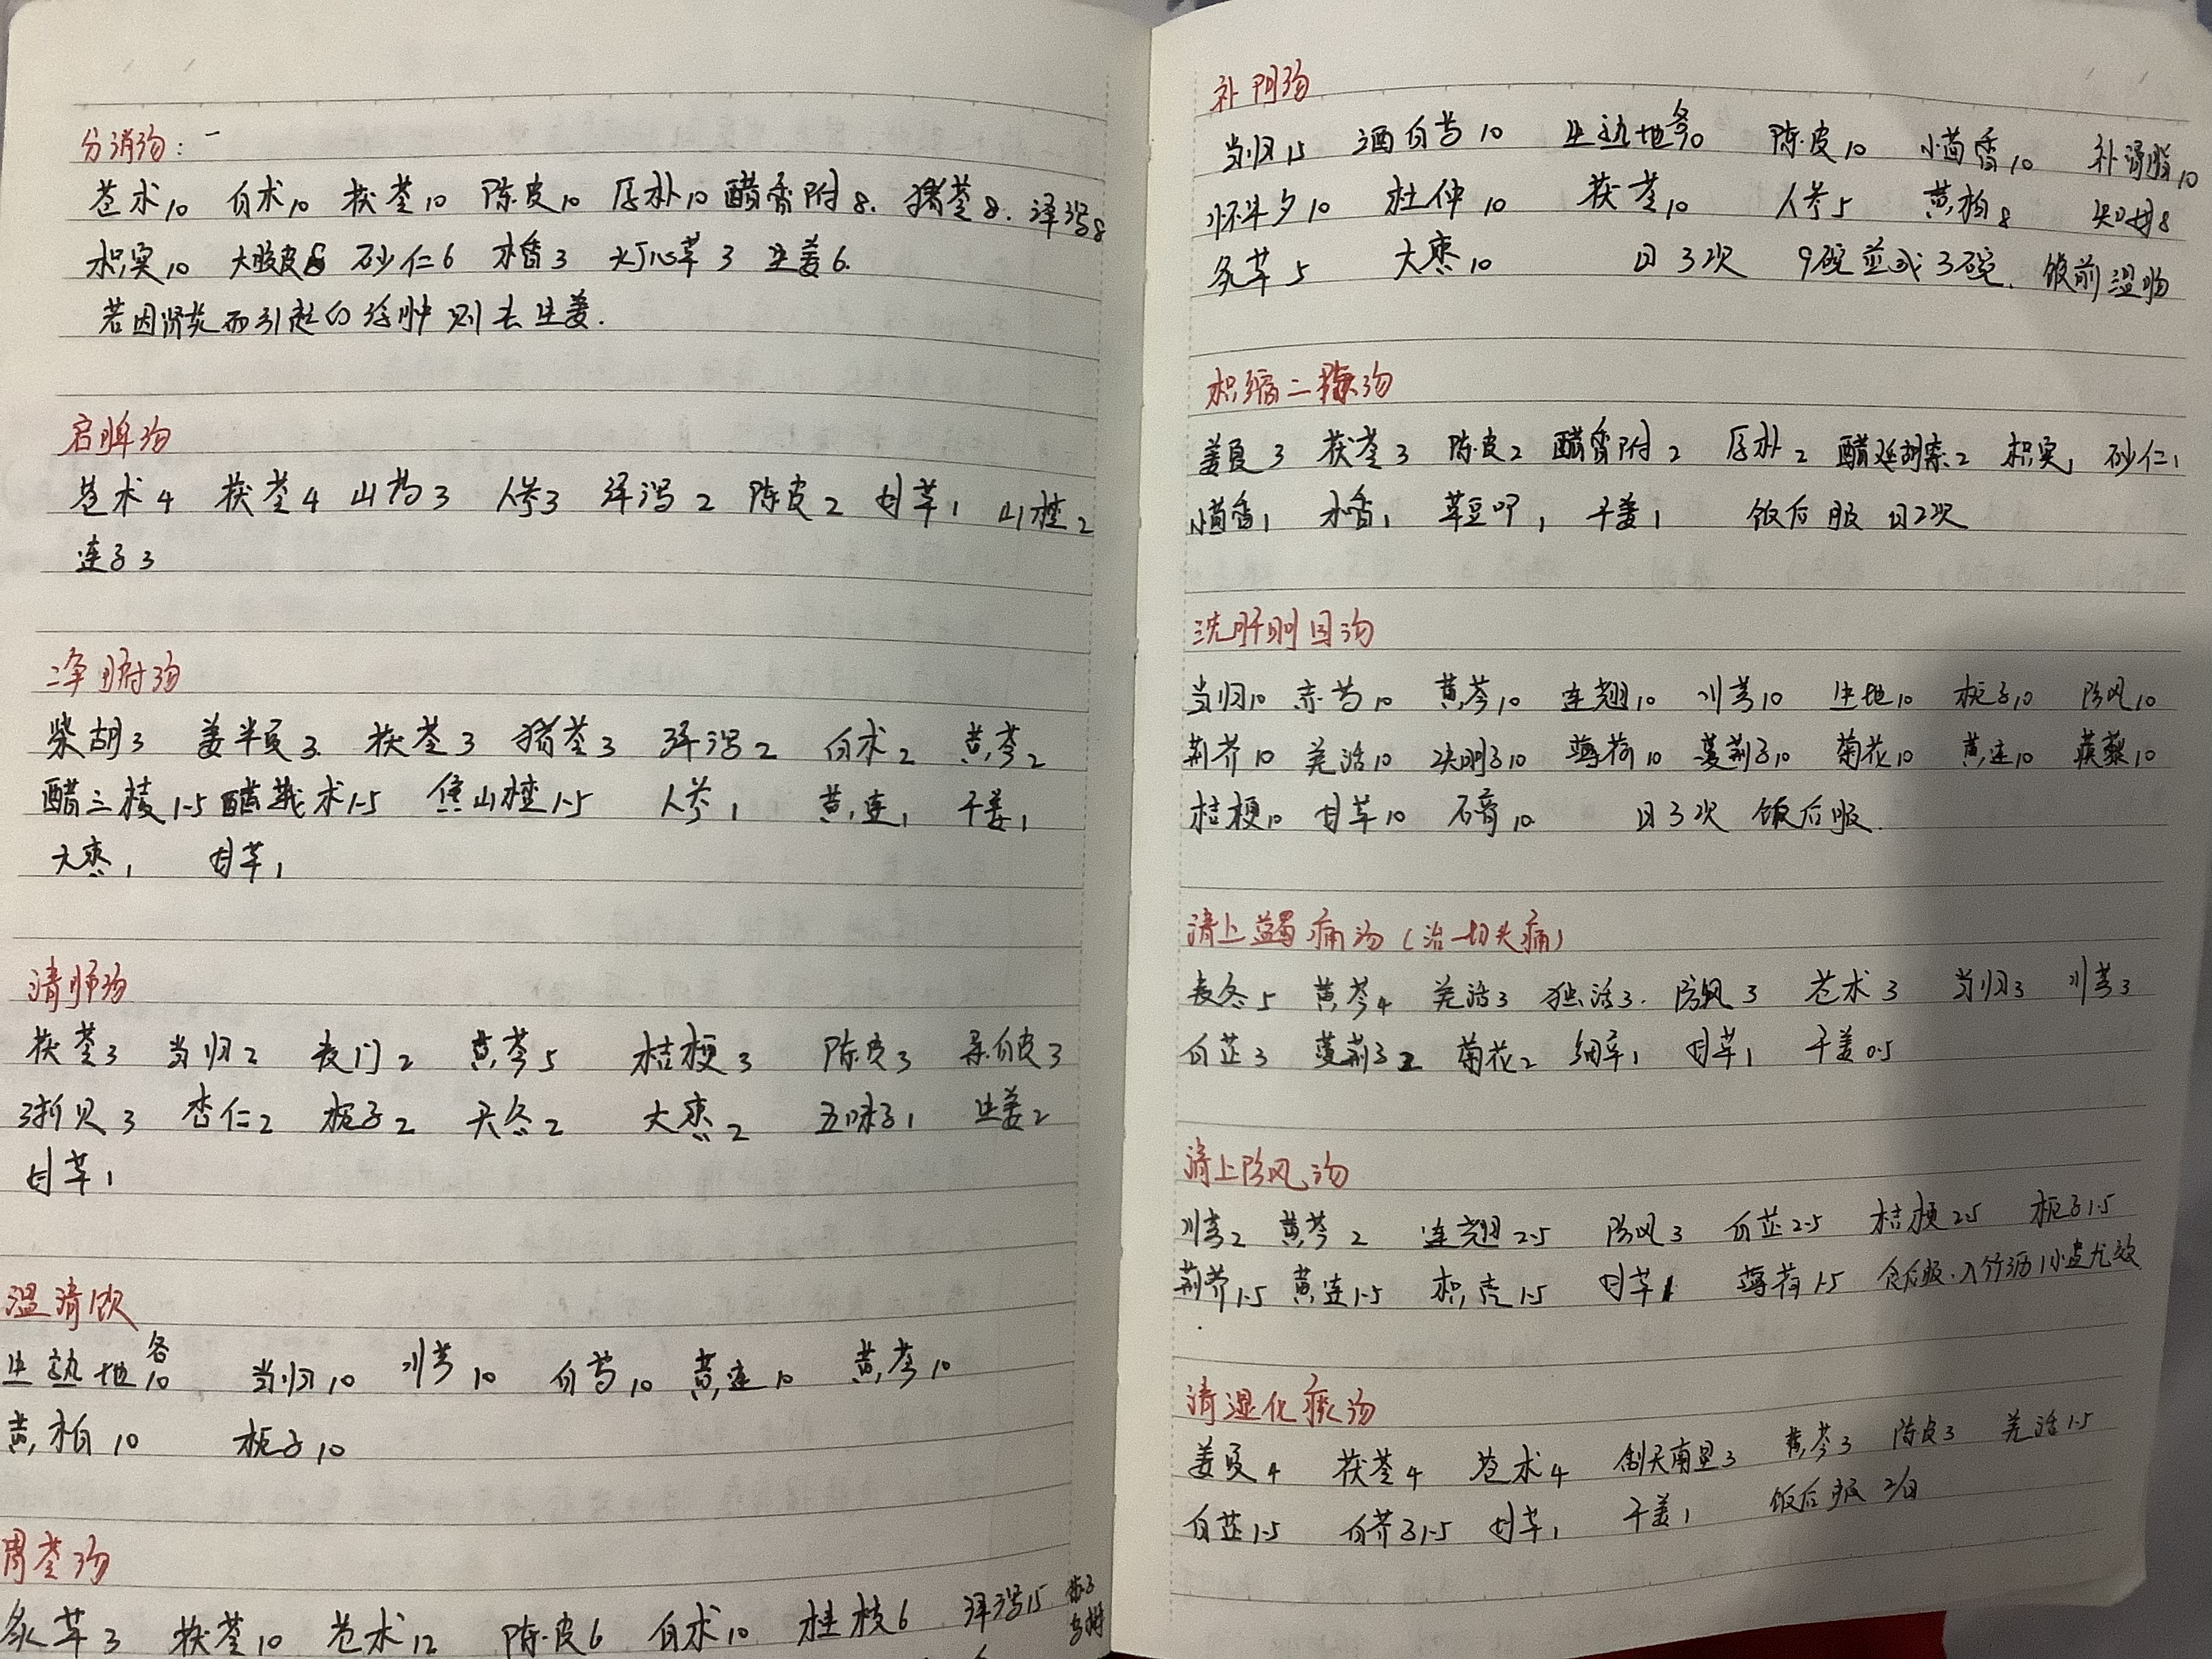 分消汤：
苍术10 白术10 茯苓10 陈皮10 厚朴10 醋香附8. 猪苓8. 泽泻8
枳实10 大腹皮8 砂仁6 木香3 灯心草3 生姜6.
若因肾炎而引起的浮肿则去生姜.
启脾汤
苍术4 茯苓4 山药3 人参3 泽泻2 陈皮2 甘草1 山楂2
莲子3
净腑汤
柴胡3 姜半夏3. 茯苓3 猪苓3 泽泻2 白术2 黄芩2
醋三棱1.5 醋莪术1.5 焦山楂1.5 人参1 黄连1 干姜1
大枣1 甘草1
清肺汤
茯苓3 当归2 麦门2 黄芩5 桔梗3 陈皮3 桑白皮3
浙贝3 杏仁2 栀子2 天冬2 大枣2 五味子1 生姜2
甘草1
温清饮
生熟地各10 当归10 川芎10 白芍10 黄连10 黄芩10
黄柏10 栀子10
胃苓汤
炙草3 茯苓10 苍术12 陈皮6 白术10 桂枝6 泽泻15
补阴汤
当归15 酒白芍10 生熟地各10 陈皮10 小茴香10 补骨脂10
怀牛夕10 杜仲10 茯苓10 人参5 黄柏8 知母8
炙草5 大枣10 日3次 9碗煎成3碗. 饭前温服
枳缩二陈汤
姜夏3 茯苓3 陈皮2 醋香附2 厚朴2 醋延胡索2 枳实1 砂仁1
小茴香1 木香1 草豆叩1 干姜1 饭后服 日2次
洗肝明目汤
当归10 赤芍10 黄芩10 连翘10 川芎10 生地10 栀子10 防风10
荆芥10 羌活10 决明子10 薄荷10 蔓荆子10 菊花10 黄连10 蒺藜10
桔梗10 甘草10 石膏10 日3次 饭后服.
清上蠲痛汤（治一切头痛）
麦冬5 黄芩4 羌活3 独活3. 防风3 苍术3 当归3 川芎3
白芷3 蔓荆子2 菊花2 细辛1 甘草1 干姜0.5
清上防风汤
川芎2 黄芩2 连翘2.5 防风3 白芷2.5 桔梗2.5 栀子1.5
荆芥1.5 黄连1.5 枳壳1.5 甘草1 薄荷1.5 食后服.入竹沥1小盅尤效
清湿化痰汤
姜夏4 茯苓4 苍术4 制天南星3 黄芩3 陈皮3 羌活1.5
白芷1.5 白芥子1.5 甘草1 干姜1 饭后服 2/日